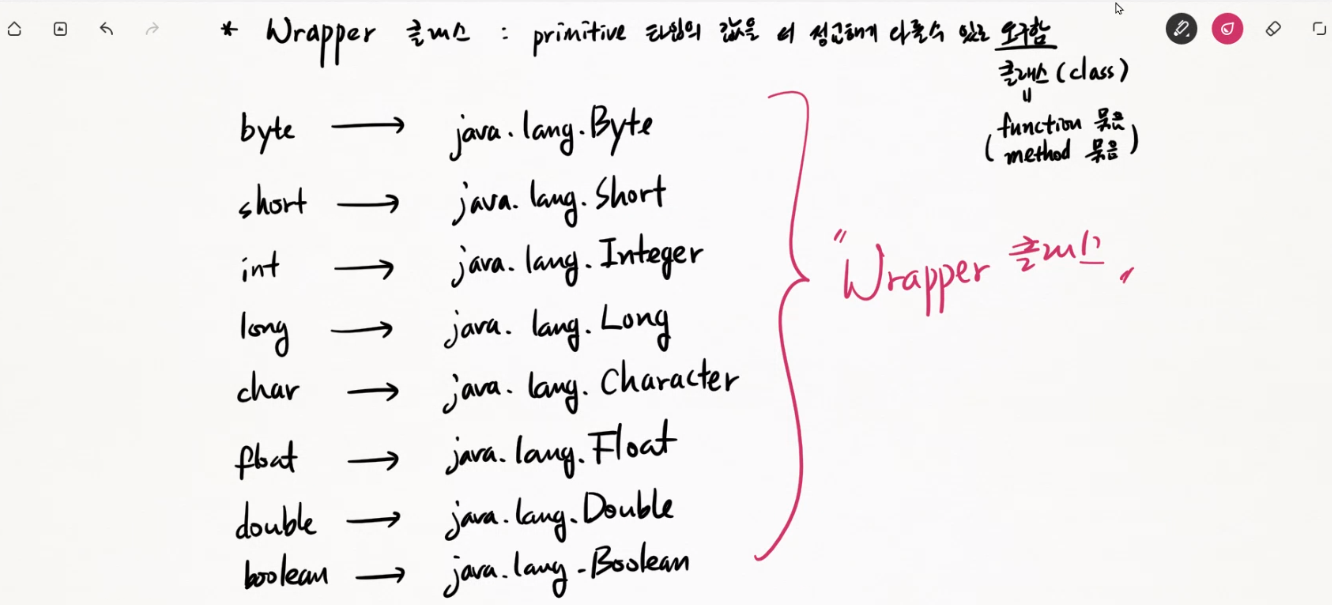 * Wrapper 클래스 : primitive 타입의 값을 더 정교하게 다룰수 있는 도구함
클래스 (class)
"
(function 묶음
method 묶음)
byte → java.lang.Byte
short → java.lang.Short
int → java.lang.Integer
long → java.lang.Long
char → java.lang.Character
float → java.lang.Float
double → java.lang.Double
boolean → java.lang.Boolean
"Wrapper 클래스"